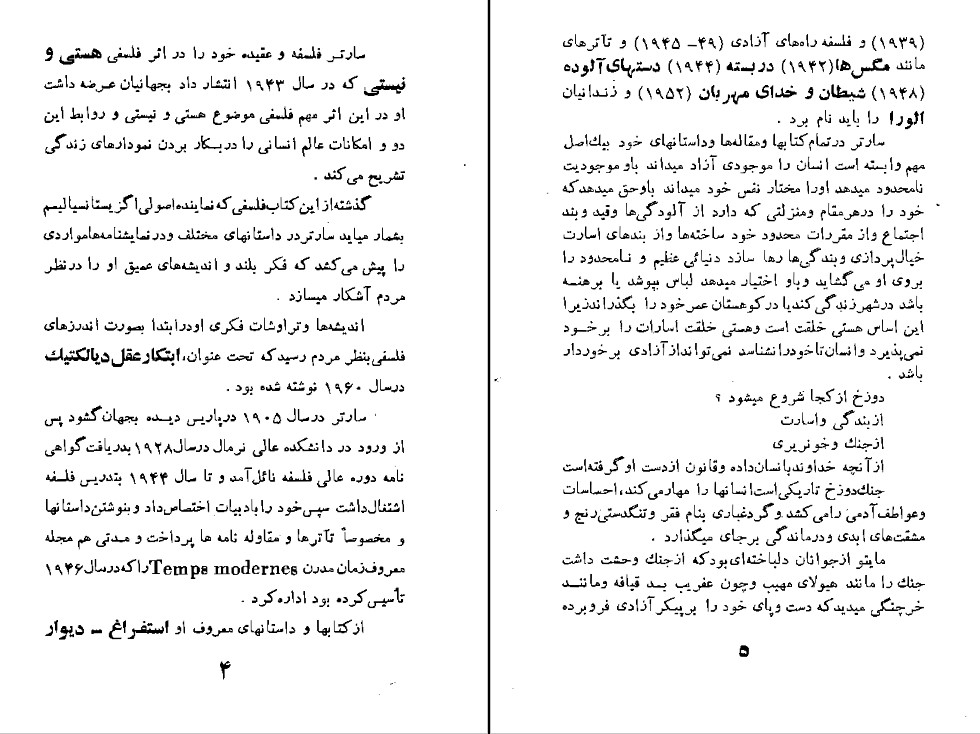 سارتر فلسفه و عقیده خود را در اثر فلسفی هستی و
نیستی که در سال ۱۹۴۳ انتشار داد بجهانیان عرضه داشت
او در این اثر مهم فلسفی موضوع هستی و نیستی و روابط این
دو و امکانات عالم انسانی را دربکار بردن نمودارهای زندگی
تشریح میکند .
گذشته از این کتاب فلسفی که نماینده اصولی اگزیستانسیالیسم
بشمار میاید سارتر در داستانهای مختلف و در نمایشنامه‌ها مواردی
را پیش میکشد که فکر بلند و اندیشه‌های عمیق او را در نظر
مردم آشکار میسازد .
اندیشه‌ها و تراوشات فکری او در ابتدا بصورت اندرزهای
فلسفی بنظر مردم رسید که تحت عنوان، ابتکار عقل دیالکتیک
درسال ۱۹۶۰ نوشته شده بود .
سارتر در سال ۱۹۰۵ در پاریس دیده بجهان گشود پس
از ورود در دانشکده عالی نرمال در سال ۱۹۲۸ بدریافت گواهی
نامه دوره عالی فلسفه نائل آمد و تا سال ۱۹۴۴ بتدریس فلسفه
اشتغال داشت سپس خود را بادبیات اختصاص داد و بنوشتن داستانها
و مخصوصاً تآترها و مقاوله نامه ها پرداخت و مدتی هم مجله
معروف زمان مدرن Temps modernes را که در سال ۱۹۴۶
تأسیس کرده بود اداره کرد .
از کتابها و داستانهای معروف او استفراغ – دیوار
۴
(۱۹۳۹) و فلسفه راه‌های آزادی (۴۹– ۱۹۴۵) و تآترهای
مانند مگس‌ها (۱۹۴۲) در بسته (۱۹۴۴) دستهای آلوده
(۱۹۴۸) شیطان و خدای مهربان (۱۹۵۲) و زندانیان
آلورا را باید نام برد .
سارتر در تمام کتابها و مقاله‌ها و داستانهای خود بیک اصل
مهم وابسته است انسان را موجودی آزاد میداند باو موجودیت
نامحدود میدهد او را مختار نفس خود میداند باو حق میدهد که
خود را در هر مقام و منزلتی که دارد از آلودگی‌ها و قید و بند
اجتماع و از مقررات محدود خود ساخته‌ها و از بندهای اسارت
خیال‌پردازی و بندگی‌ها رها سازد دنیائی عظیم و نامحدود را
بروی او می‌گشاید و باو اختیار میدهد لباس بپوشد یا برهنه
باشد در شهر زندگی کند یا در کوهستان عمر خود را بگذراند زیرا
این اساس هستی خلقت است و هستی خلقت اسارات را برخود
نمی‌پذیرد و انسان تا خود را نشناسد نمی‌تواند از آزادی برخوردار
باشد .
دوزخ از کجا شروع میشود ؟
از بندگی و اسارت
از جنگ و خونریری
از آنچه خداوند بانسان داده و قانون از دست او گرفته است
جنگ دوزخ تاریکی است انسانها را مهار می‌کند، احساسات
و عواطف آدمی را می‌کشد و گرد غباری بنام فقر و تنگدستی رنج و
مشقت‌های ابدی و درماندگی برجای میگذارد .
مایتو از جوانان دلباخته‌ای بود که از جنگ وحشت داشت
جنگ را مانند هیولای مهیب و چون عفریب بد قیافه و مانند
خرچنگی میدید که دست و پای خود را بر پیکر آزادی فروبرده
۵